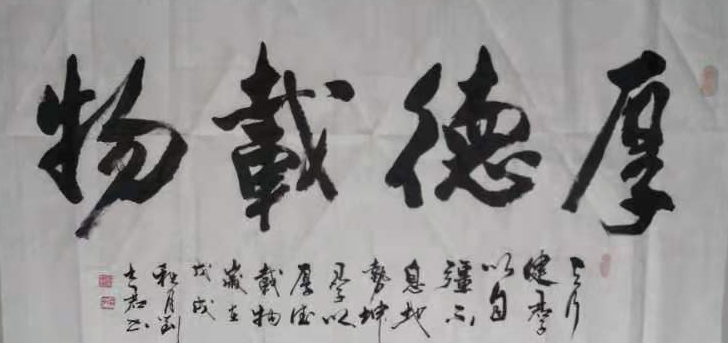 厚德載物
天行
健君子
以自
彊不
息地
勢坤
君子以
厚德
載物
歲在
戊戌
秋月劉